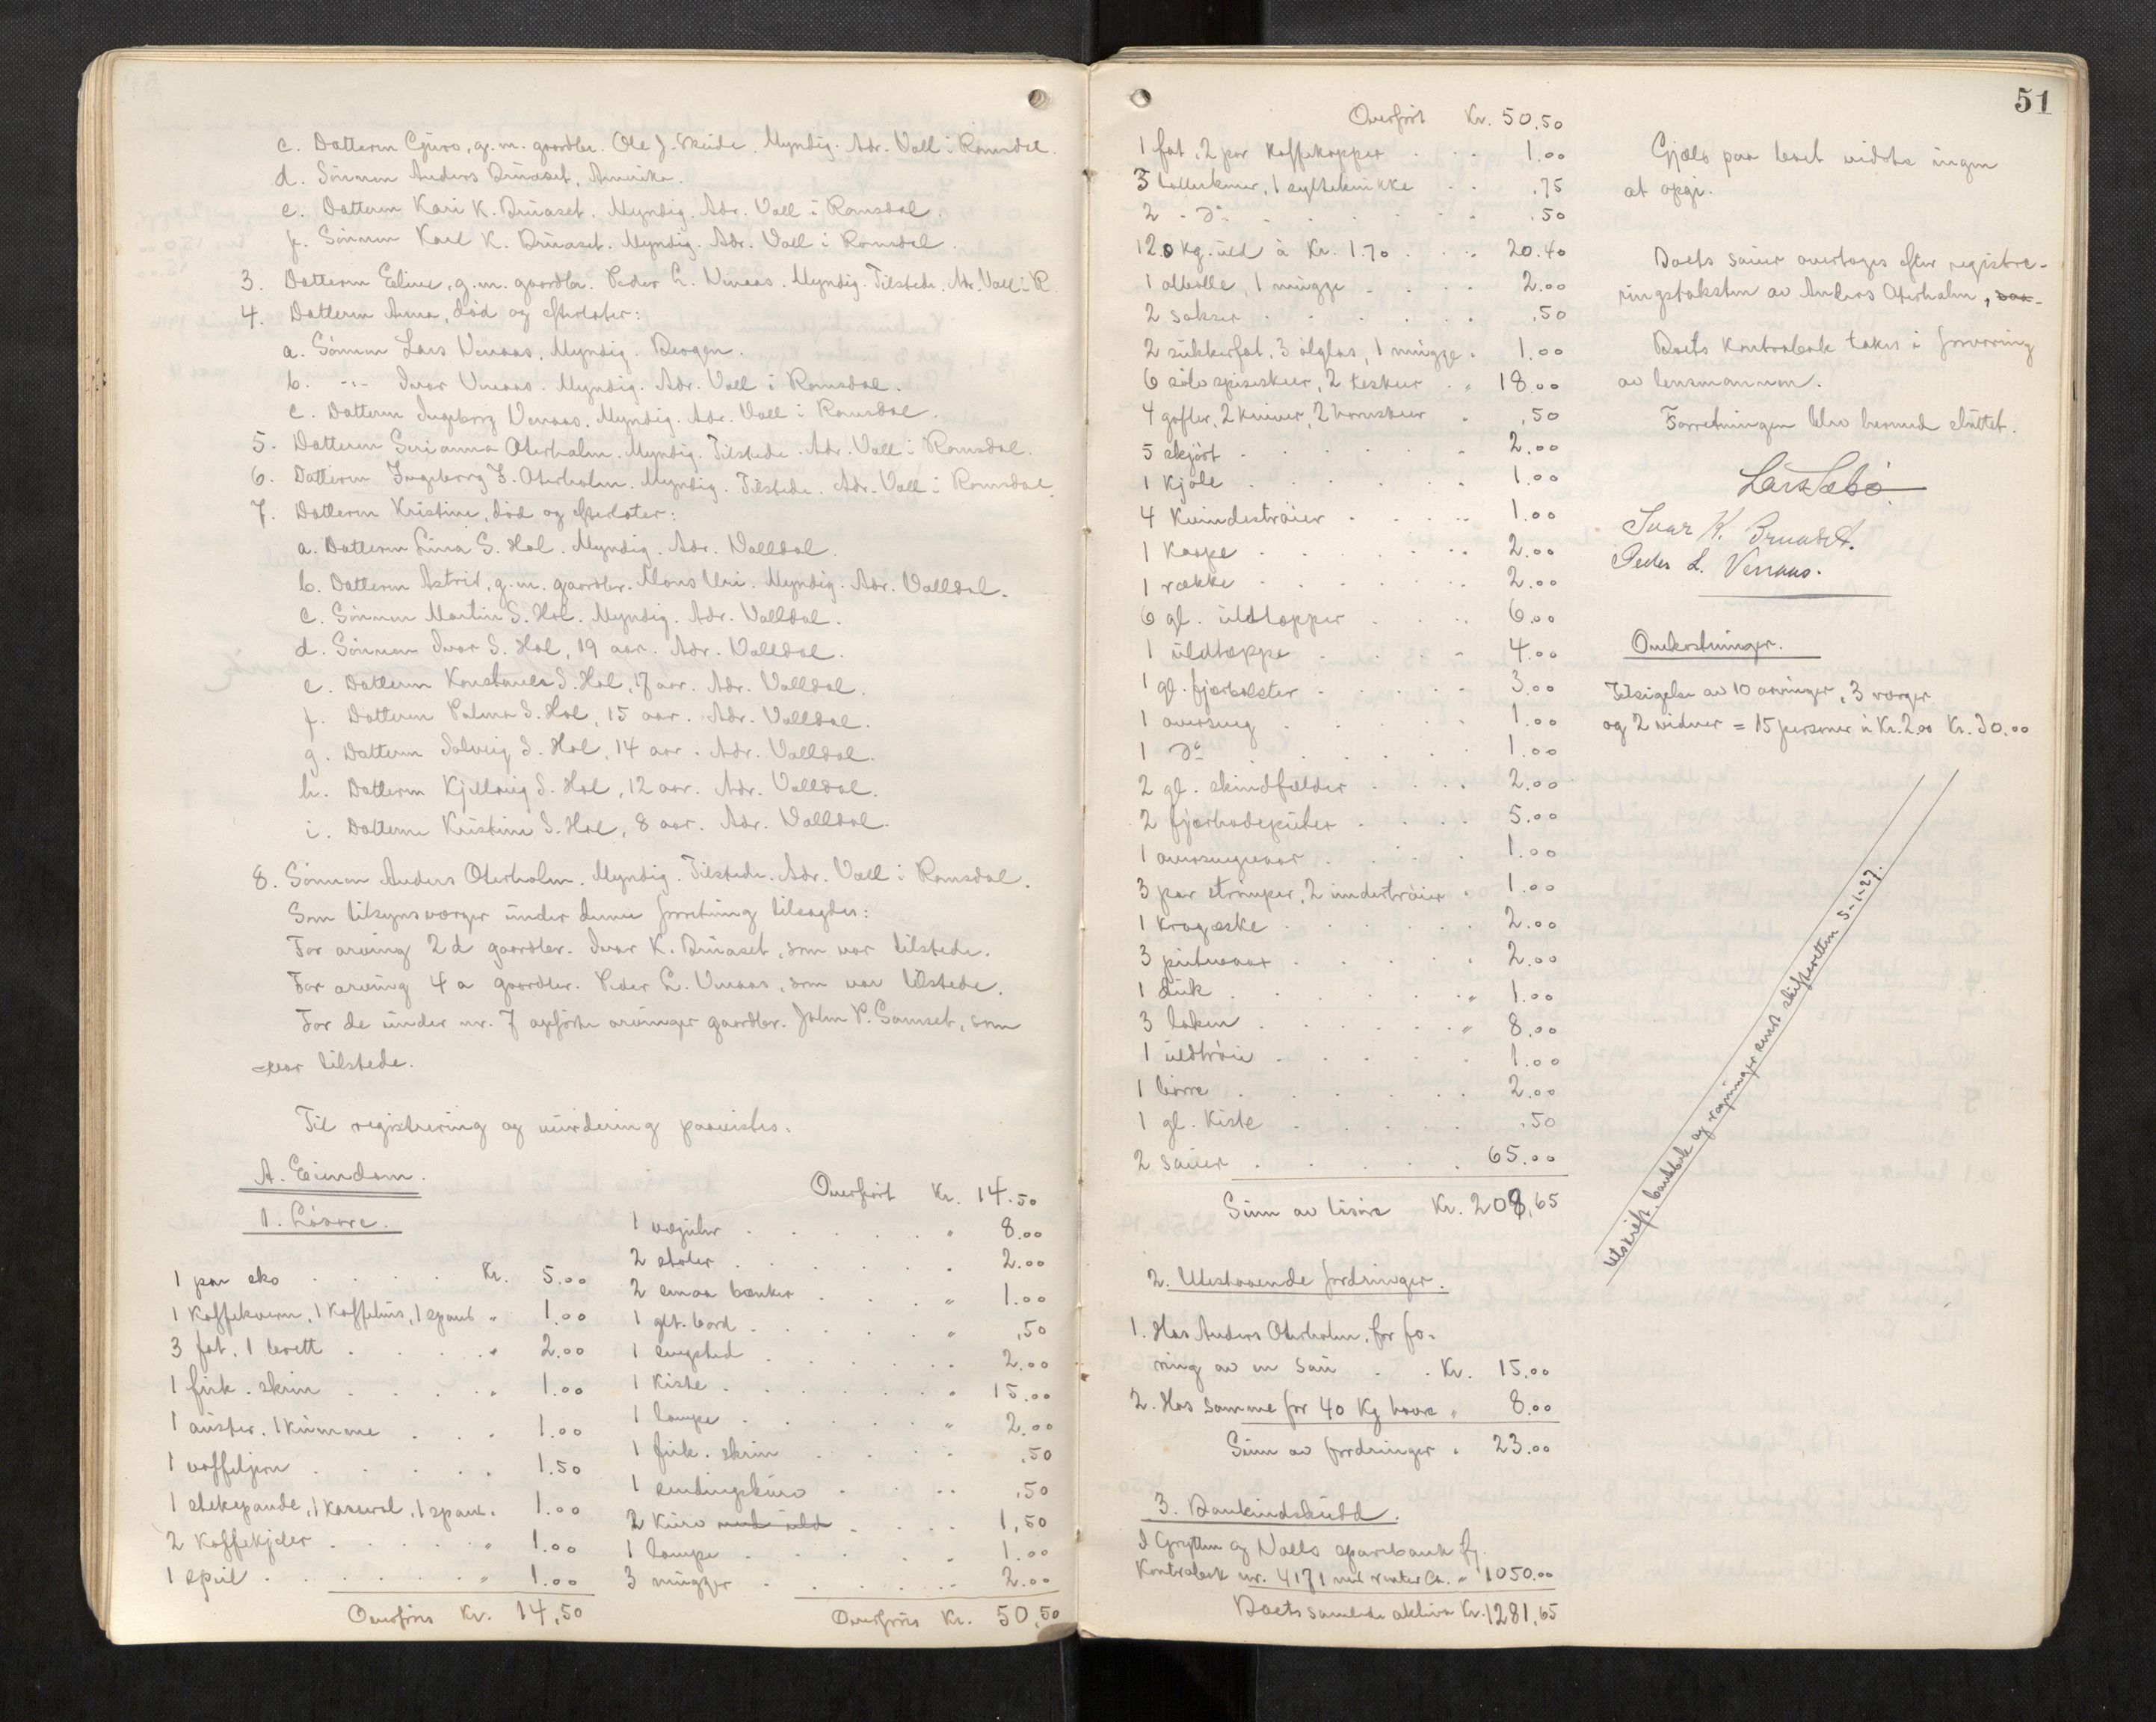 c. Datteren Gjuro, g.m. gaardbr. Ole J. Skeide. Myndig. Adr. Voll i Romsdal.
d. Sönnen Anders Brüaset, Amerika.
e. Datteren Kari K. Brüaset. Myndig. Adr. Voll i Romsdal.
f. Sönnen Karl K. Brüaset. Myndig. Adr. Voll i Romsdal.
3. Datteren Eline, g.m. gaardbr. Peder L. Venaas. Myndig. Tilstede. Adr. Voll i R.
4. Datteren Anna, död og efterlater:
a. Sönnen Lars Venaas. Myndig. Bergen.
b. -"- Ivar Venaas. Myndig. Adr. Voll i Romsdal.
c. Datteren Ingeborg Venaas. Myndig. Adr. Voll i Romsdal.
5. Datteren Serianna Oterholm. Myndig. Tilstede. Adr. Voll i Romsdal.
6. Datteren Ingeborg J. Oterholm. Myndig. Tilstede. Adr. Voll i Romsdal.
7. Datteren Kristine, död og efterlater:
a. Datteren Lina S. Hol. Myndig. Adr. Valldal.
b. Datteren Astrid, g.m. gaardbr. Mons Uri. Myndig. Adr. Valldal.
c. Sönnen Martin S. Hol. Myndig. Adr. Valldal.
d. Sönnen Ivar S. Hol, 19 aar. Adr. Valldal.
e. Datteren Konstance S. Hol, 17 aar. Adr. Valldal.
f. Datteren Palma S. Hol, 15 aar. Adr. Valldal.
g. Datteren Solveig S. Hol, 14 aar. Adr. Valldal.
h. Datteren Kjellaug S. Hol, 12 aar. Adr. Valldal.
i. Datteren Kristine S. Hol, 8 aar. Adr. Valldal.
8. Sönnen Anders Oterholm. Myndig. Tilstede. Adr. Voll i Romsdal.
Som tilsynsværger ünder denne forretning tilsagdes:
For arving 2d gaardbr. Ivar K. Brüaset, som var tilstede.
For arving 4a gaardbr. Peder L. Venaas, som var tilstede.
For de ünder nr. 7 opförte arvinger gaardbr. John P. Samset, som
var tilstede.
Til registrering og vürdering paavistes.
A. Eiendom.
1. Lösöre.
1 par sko . . . . Kr. 5.00
1 kaffekvern, 1 kaffebrenner, 1 spand " 1.00
3 fat, 1 brett . . . . " 2.00
1 firk. skrin . . . . " 1.00
1 auster, 1 kümme . . . 1.00
1 vaffeljern . . . . . 1.50
1 stekepande, 1 kasserol, 1 spand. 1.00
2 kaffekjeler . . . . " 1.00
1 speil . . . . . . " 1.00
Overföres Kr. 14,50
Overfört Kr. 14.50
1 vægühr . . . . . " 8.00
2 stoler . . . . . . 2.00
2 smaa bænker . . . " 1.00
1 glt. bord . . . . . " ,50
1 sengsted . . . . . . 2.00
1 kiste . . . . . . " 15.00
1 lampe . . . . . . " 2.00
1 firk. skrin . . . . ,50
1 sendingskürv . . . . ,50
2 kürv med üld . . . . 1,50
1 lampe . . . . . . 1.00
3 mügger . . . . . . 2.00
Overföres Kr. 50,50
51
Overfört Kr. 50,50
1 fat, 2 par kaffekopper . . . 1.00
3 tallerkener, 1 syltekrükke . . ,75
2 - do - . . . . . . ,50
12.0 kg. üld à Kr. 1.70 . . . 20.40
1 ølbolle, 1 mügge . . . . 2.00
2 sakser . . . . . . . ,50
2 sükkerfat, 3 ölglas, 1 mügge . 1.00
6 sölvspiseskeer, 2 teskeer . " 18.00
4 gafler, 2 kniver, 2 hornskeer . ,50
5 skjört . . . . . . . 2.00
1 kjole . . . . . . . 1.00
4 kvindetröier . . . . . 1.00
1 kaape . . . . . . . 2.00
1 række . . . . . . . 2.00
6 gl. üldtepper . . . . 6.00
1 üldteppe . . . . . 4.00
1 gl. fjærbolster . . . . . 3.00
1 overseng . . . . . . 1.00
1 do . . . . . . . 1.00
2 gl. skindfelder . . . . 2.00
2 fjærhodepüter . . . . 5.00
1 oversengsvaar . . . . 1.00
3 par strömper, 2 ündertröier . 1.00
1 krageske . . . . . . 2.00
3 pütevaar . . . . . 2.00
1 dük . . . . . . . " 1.00
3 laken . . . . . . " 8.00
1 üldtröie . . . . . . 1.00
1 börre . . . . . . . 2.00
1 gl. kiste . . . . . . ,50
2 saüer . . . . . . 65.00
Süm av lösöre Kr. 208,65
2. Utestaaende fordringer.
1. Hos Anders Oterholm, for fo-
ring av en saü . . Kr. 15.00
2. Hos samme for 40 kg havre " 8.00
Süm av fordringer " 23.00
3. Bankindsküdd.
I Grytten og Volls sparebank flg.
Kontrabok nr. 4171 med renter Ca. " 1050.00
Boets samlede aktiva Kr. 1281,65
Gjæld paa boet vidste ingen
at opgi.
Boets saüer overtages efter registre-
ringstaksten av Anders Oterholm, som
Boets kontrabok takes i forvaring
av lensmannen.
Forretningen blev hermed slüttet.
Lars Sæbö.
Ivar K. Bruaset.
Peder L. Vennaas.
Omkostninger.
Tilsigelse av 10 arvinger, 3 værger
og 2 vidner = 15 personer à Kr. 2.00 Kr. 30.00
Utskrift, bankbok og regninger sendt skifteretten 5-1-27.